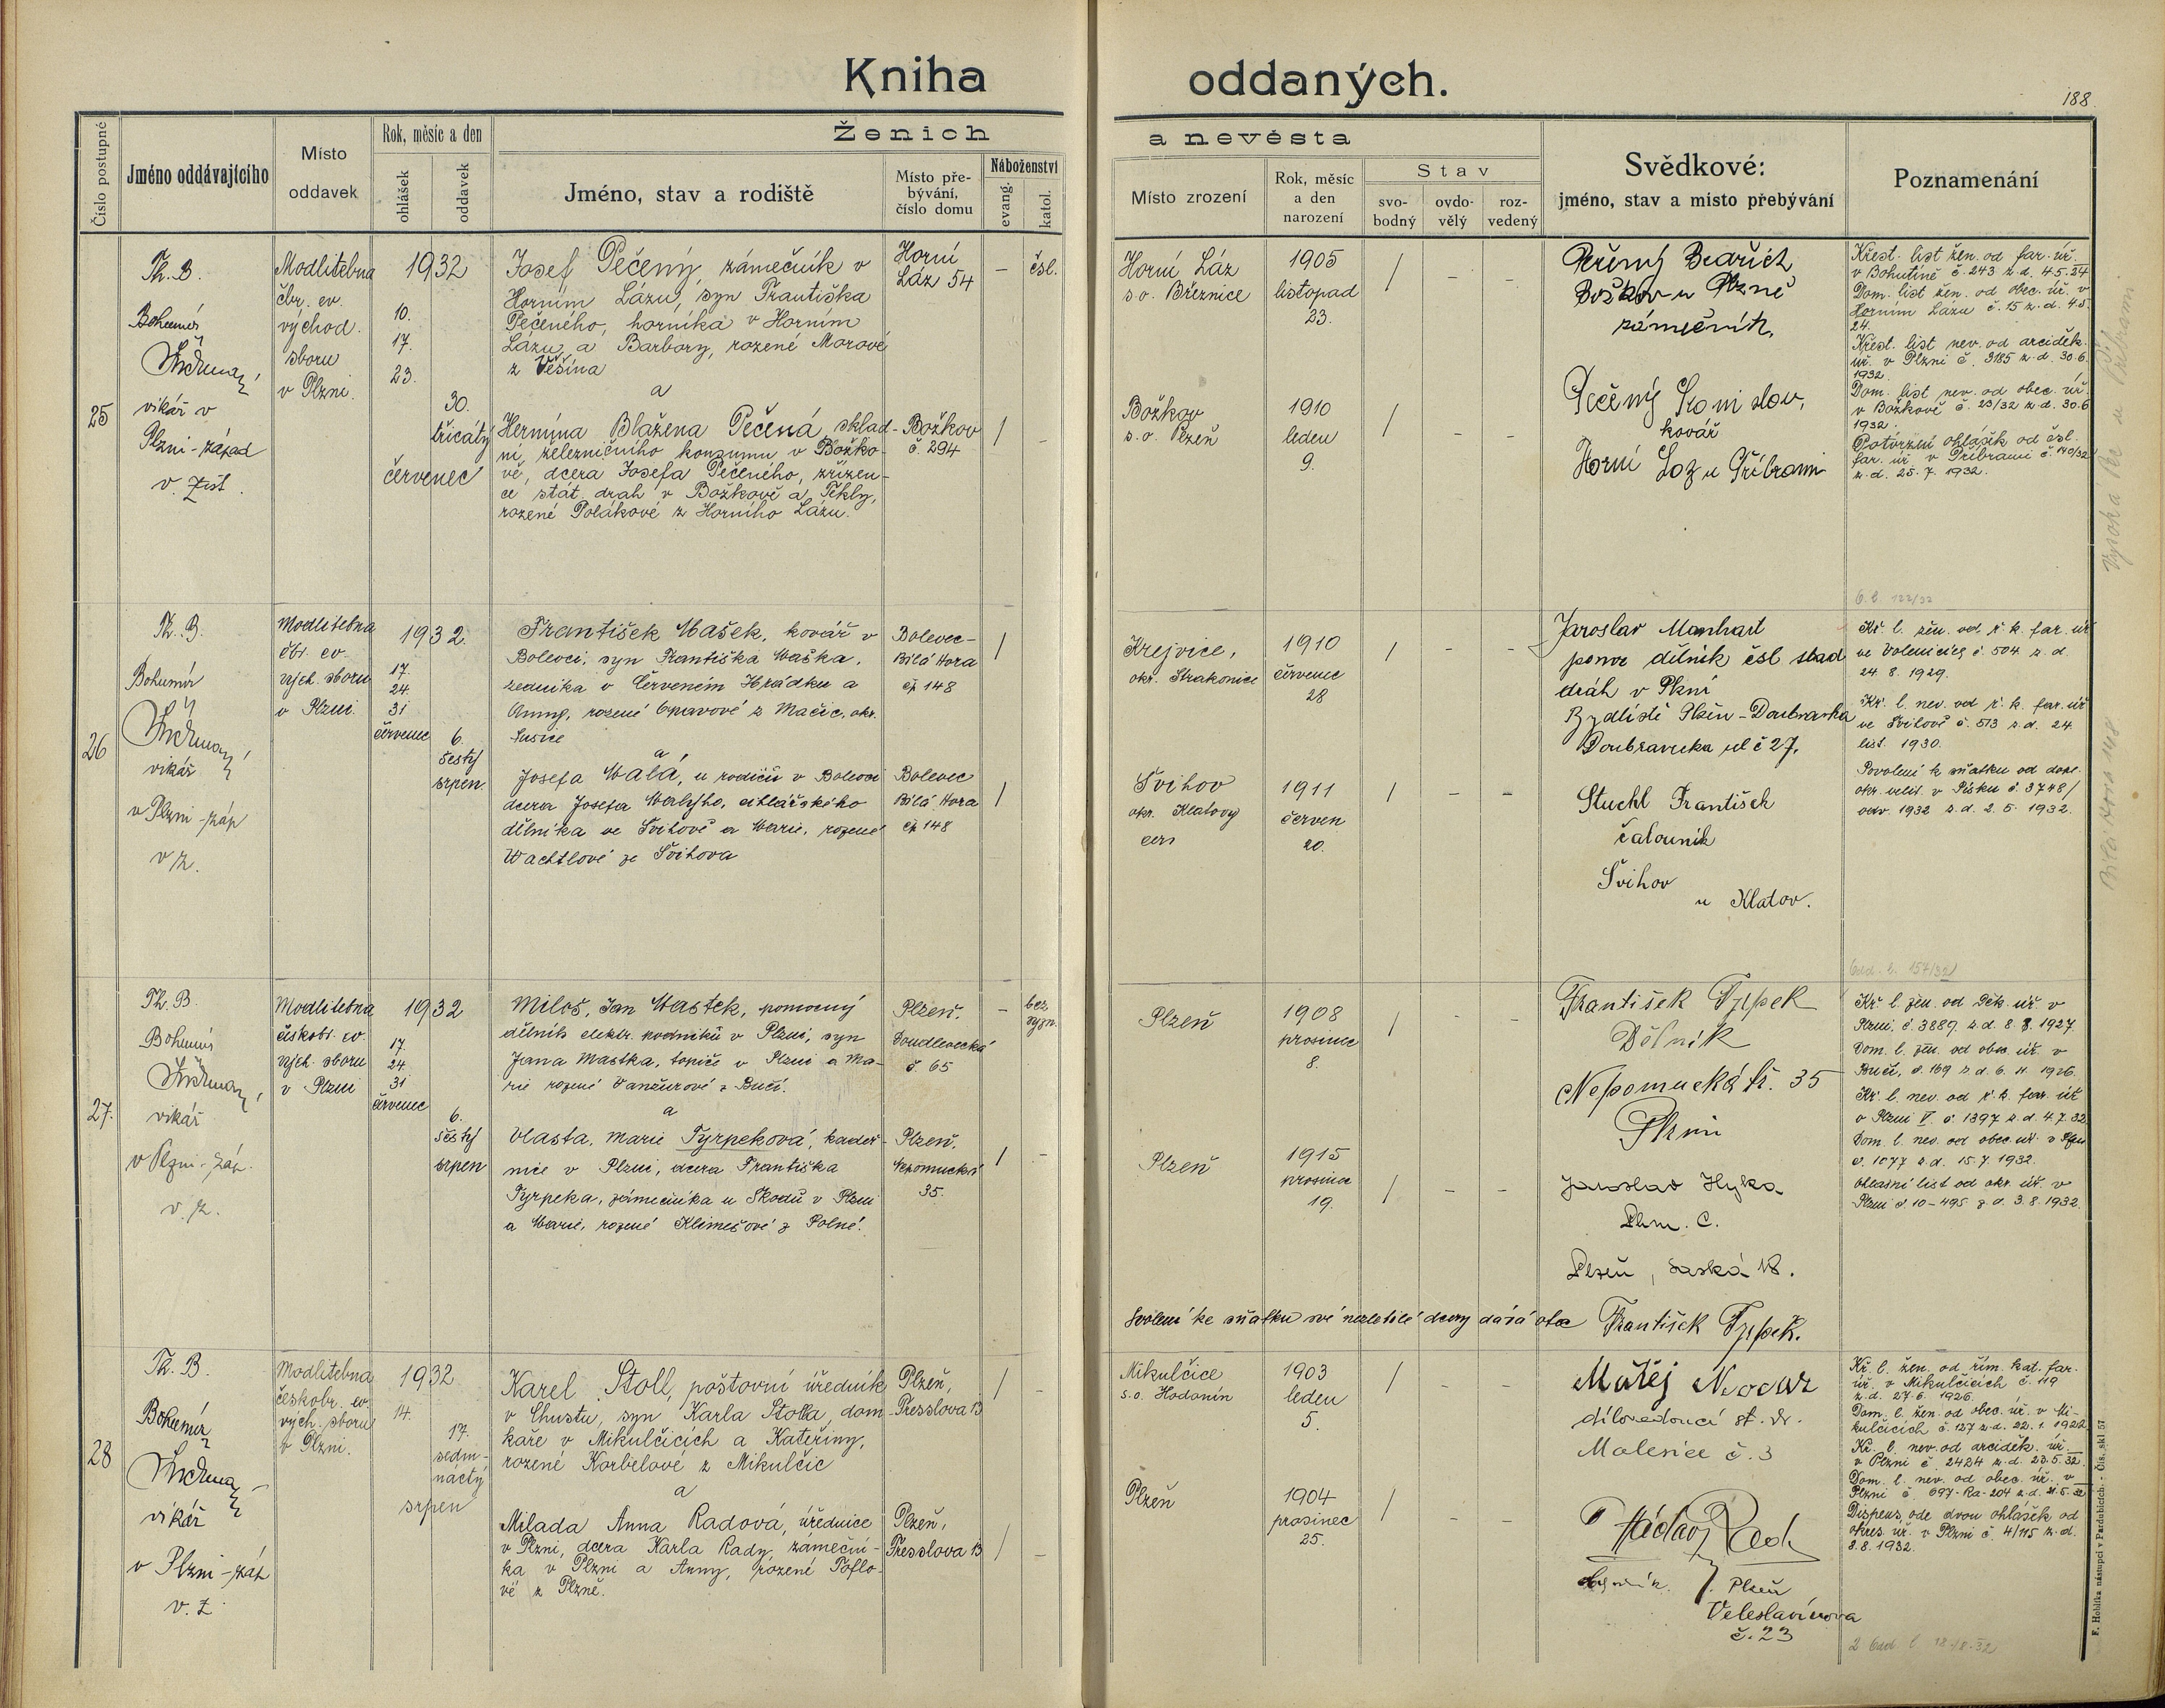 Kniha oddaných.
188
Číslo postupné
Jméno oddávajícího
Místo
oddavek
Rok, měsíc a den
ohlášek
oddavek
Ženich
a nevěsta
Jméno, stav a rodiště
Místo pře-
bývání,
číslo domu
Náboženství
evang.
katol.
Místo zrození
Rok, měsíc
a den
narození
Stav
svo-
bodný
ovdo-
vělý
roz-
vedený
Svědkové:
jméno, stav a místo přebývání
Poznamenání
25
Th. B.
Bohumír
vikář v
Plzni-západ
v. zást.
Modlitebna
čbr. ev.
východ.
sboru
v Plzni.
1932
10.
17.
23.
30.
třicátý
červenec
Josef Pečený, zámečník v
Horním Lázu, syn Františka
Pečeného, horníka v Horním
Lázu a Barbory, rozené Morové
z Věšína
a
Hermína Blažena Pečená, sklad-
ní železničního konzumu v Božko-
vě, dcera Josefa Pečeného, zřízen-
ce stát. drah v Božkově a Tekly,
rozené Polákové z Horního Lázu.
Horní
Láz 54
Božkov
č. 294
– čsl.
/ –
Horní Láz
s.o. Březnice
1905
listopad
23.
/ – –
Božkov
s.o. Plzeň
1910
leden
9.
/ – –
Pečený Bedřich
Božkov u Plzně
zámečník.
Pečený Stanislav,
kovář
Horní Láz u Příbrami
Křest. list žen. od far. úř.
v Bohutině č. 243 z.d. 4.5.24
Dom. list žen. od obec. úř. v
Horním Lázu č. 15 z.d. 4.5.
24.
Křest. list nev. od arciděk.
úř. v Plzni č. 3185 z.d. 30.6.
1932.
Dom. list nev. od obec. úř.
v Božkově č. 23/32 z.d. 30.6
1932.
Potvrzení ohlášek od čsl.
far. úř. v Příbrami č. 140/32
z.d. 25.7.1932.
26
Th. B.
Bohumír
vikář
v Plzni-záp
v z.
Modlitebna
čbr. ev.
vých. sboru
v Plzni.
1932.
17.
24.
31
červenec
6.
šestý
srpen.
František Mašek, kovář v
Bolevci, syn Františka Maška,
zedníka v Červeném Hrádku a
Anny, rozené Opavové z Mačic, okr.
Sušice
a
Josefa Malá, u rodičů v Bolevci
dcera Josefa Malýho, cihlářského
dělníka ve Švihově a Marie, rozené
Wachtlové ze Švihova
Bolevec-
Bílá Hora
čp 148
Bolevec
Bílá Hora
čp 148
/
/
Krejnice,
okr. Strakonice
1910
červenec
28
/ – –
Švihov
okr. Klatovy
1911
červen
20.
/ – –
Jaroslav Manhart
pomoc dělník čsl stad
dráh v Plzni
Bydliště Plzeň-Doubravka
Doubravecka ul č 27.
Stuchl František
čalouník
Švihov
u Klatov.
O. l. 122/32
Kř. l. žen. od ř. k. far. úř
ve Volenicích č. 504 z.d.
24.8.1929.
Kř. l. nev. od ř. k. far. úř
ve Švihově č. 513 z.d. 24.
list. 1930.
Povolení k sňatku od dopl.
okr. velit. v Písku č. 3748/
odv. 1932 z.d. 2.5.1932.
Bílá Hora 148
27.
Th. B.
Bohumír
vikář
v Plzni-záp.
v. z.
Modlitebna
českobr. ev.
vých. sboru
v Plzni
1932
17.
24.
31
červenec
6.
šestý
srpen
Miloš, Jan Mastek, pomocný
dělník elektr. podniků v Plzni, syn
Jana Mastka, topiče v Plzni a Ma-
rie rozené Vanžurové z Bučí.
a
Vlasta, Marie Tyrpeková, kadeř-
nice v Plzni, dcera Františka
Tyrpeka, zámečníka u Škodů v Plzni
a Marie, rozené Klimešové z Polné.
Plzeň.
Doudlevecká
č 65
Plzeň.
Nepomucká
35.
– bez
vyzn.
/ –
Plzeň
1908
prosinec
8.
/ – –
Plzeň
1915
prosinec
19.
/ – –
František Tyrpek
Dělník
Nepomucká tř. 35
Plzni
Jaroslav Hyka
Plzeň, Saská 18.
Kř. l. žen. od Děk. úř. v
Plzni, č. 3889. z.d. 8.8.1927.
Dom. l. žen. od obec. úř. v
Bučí, č. 169 z.d. 6.11.1926.
Kř. l. nev. od ř. k. far. úř
v Plzni V. č. 1397 z.d. 4.7.32
Dom. l. nev. od obec. úř. v Plzni
č. 1077 z.d. 15.7.1932.
Ohlašní list od okr. úř. v
Plzni č. 10-495 z d. 3.8.1932.
Odd. l. 157/32
Svolení ke sňatku své nezletilé dcery dává otec František Tyrpek.
28
Th. B.
Bohumír
vikář
v Plzni-záp
v. z
Modlitebna
českobr. ev.
vých. sboru
v Plzni.
1932
14.
17.
sedm-
náctý
srpen
Karel Stoll, poštovní úředník
v Chustu, syn Karla Stolla, dom-
kaře v Mikulčicích a Kateřiny,
rozené Korbelové z Mikulčic
a
Milada Anna Radová, úřednice
v Plzni, dcera Karla Rady, zámeční-
ka v Plzni a Anny, rozené Toflo-
vé z Plzně.
Plzeň,
Presslova 13
Plzeň,
Presslova 13
/ –
/ –
Mikulčice
s.o. Hodonín
1903
leden
5.
/ – –
Plzeň
1904
prosinec
25.
/ – –
Matěj
dílovedoucí st. dr.
Malesice č. 3
Václav Rada
Plzeň
Veleslavínova
č. 23
Kř. l. žen. od řím. kat. far.
úř. v Mikulčicích č. 119
z.d. 27.6.1926.
Dom. l. žen. od obec. úř. v Mi-
kulčicích č. 127 z.d. 22.1.1922.
Kř. l. nev. od arciděk. úř.
v Plzni č. 2424 z.d. 23.5.32.
Dom. l. nev. od obec. úř. v
Plzni č. 697-Ra-204 z.d. 21.5.32
Dispens. ode dvou ohlášek od
okres. úř. v Plzni č. 4/115 z.d.
8.8.1932.
F. Hoblíka nástupci v Pardubicích. - Čís. skl 57